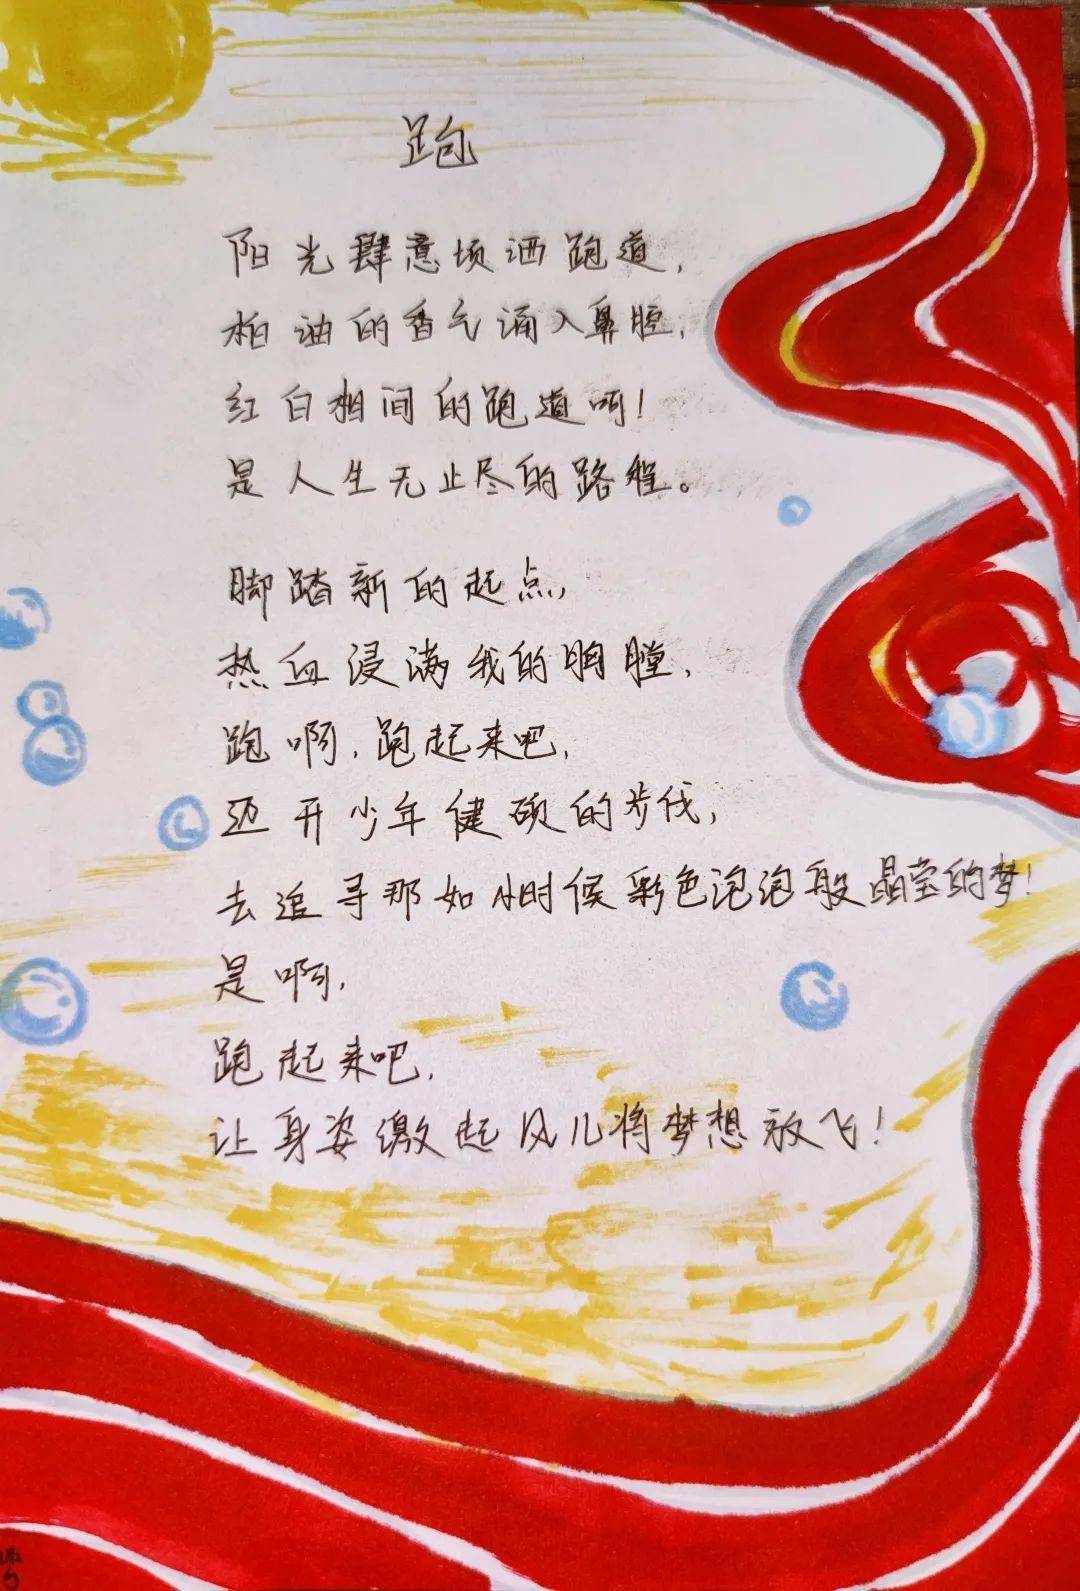 跑
阳光肆意倾洒跑道,
柏油的香气涌入鼻腔,
红白相间的跑道啊!
是人生无止尽的路程。
脚踏新的起点,
热血浸满我的胸膛,
跑啊,跑起来吧,
迈开少年健硕的步伐,
去追寻那如小时候彩色泡泡般晶莹的梦!
是啊,
跑起来吧,
让身姿激起风儿将梦想放飞!